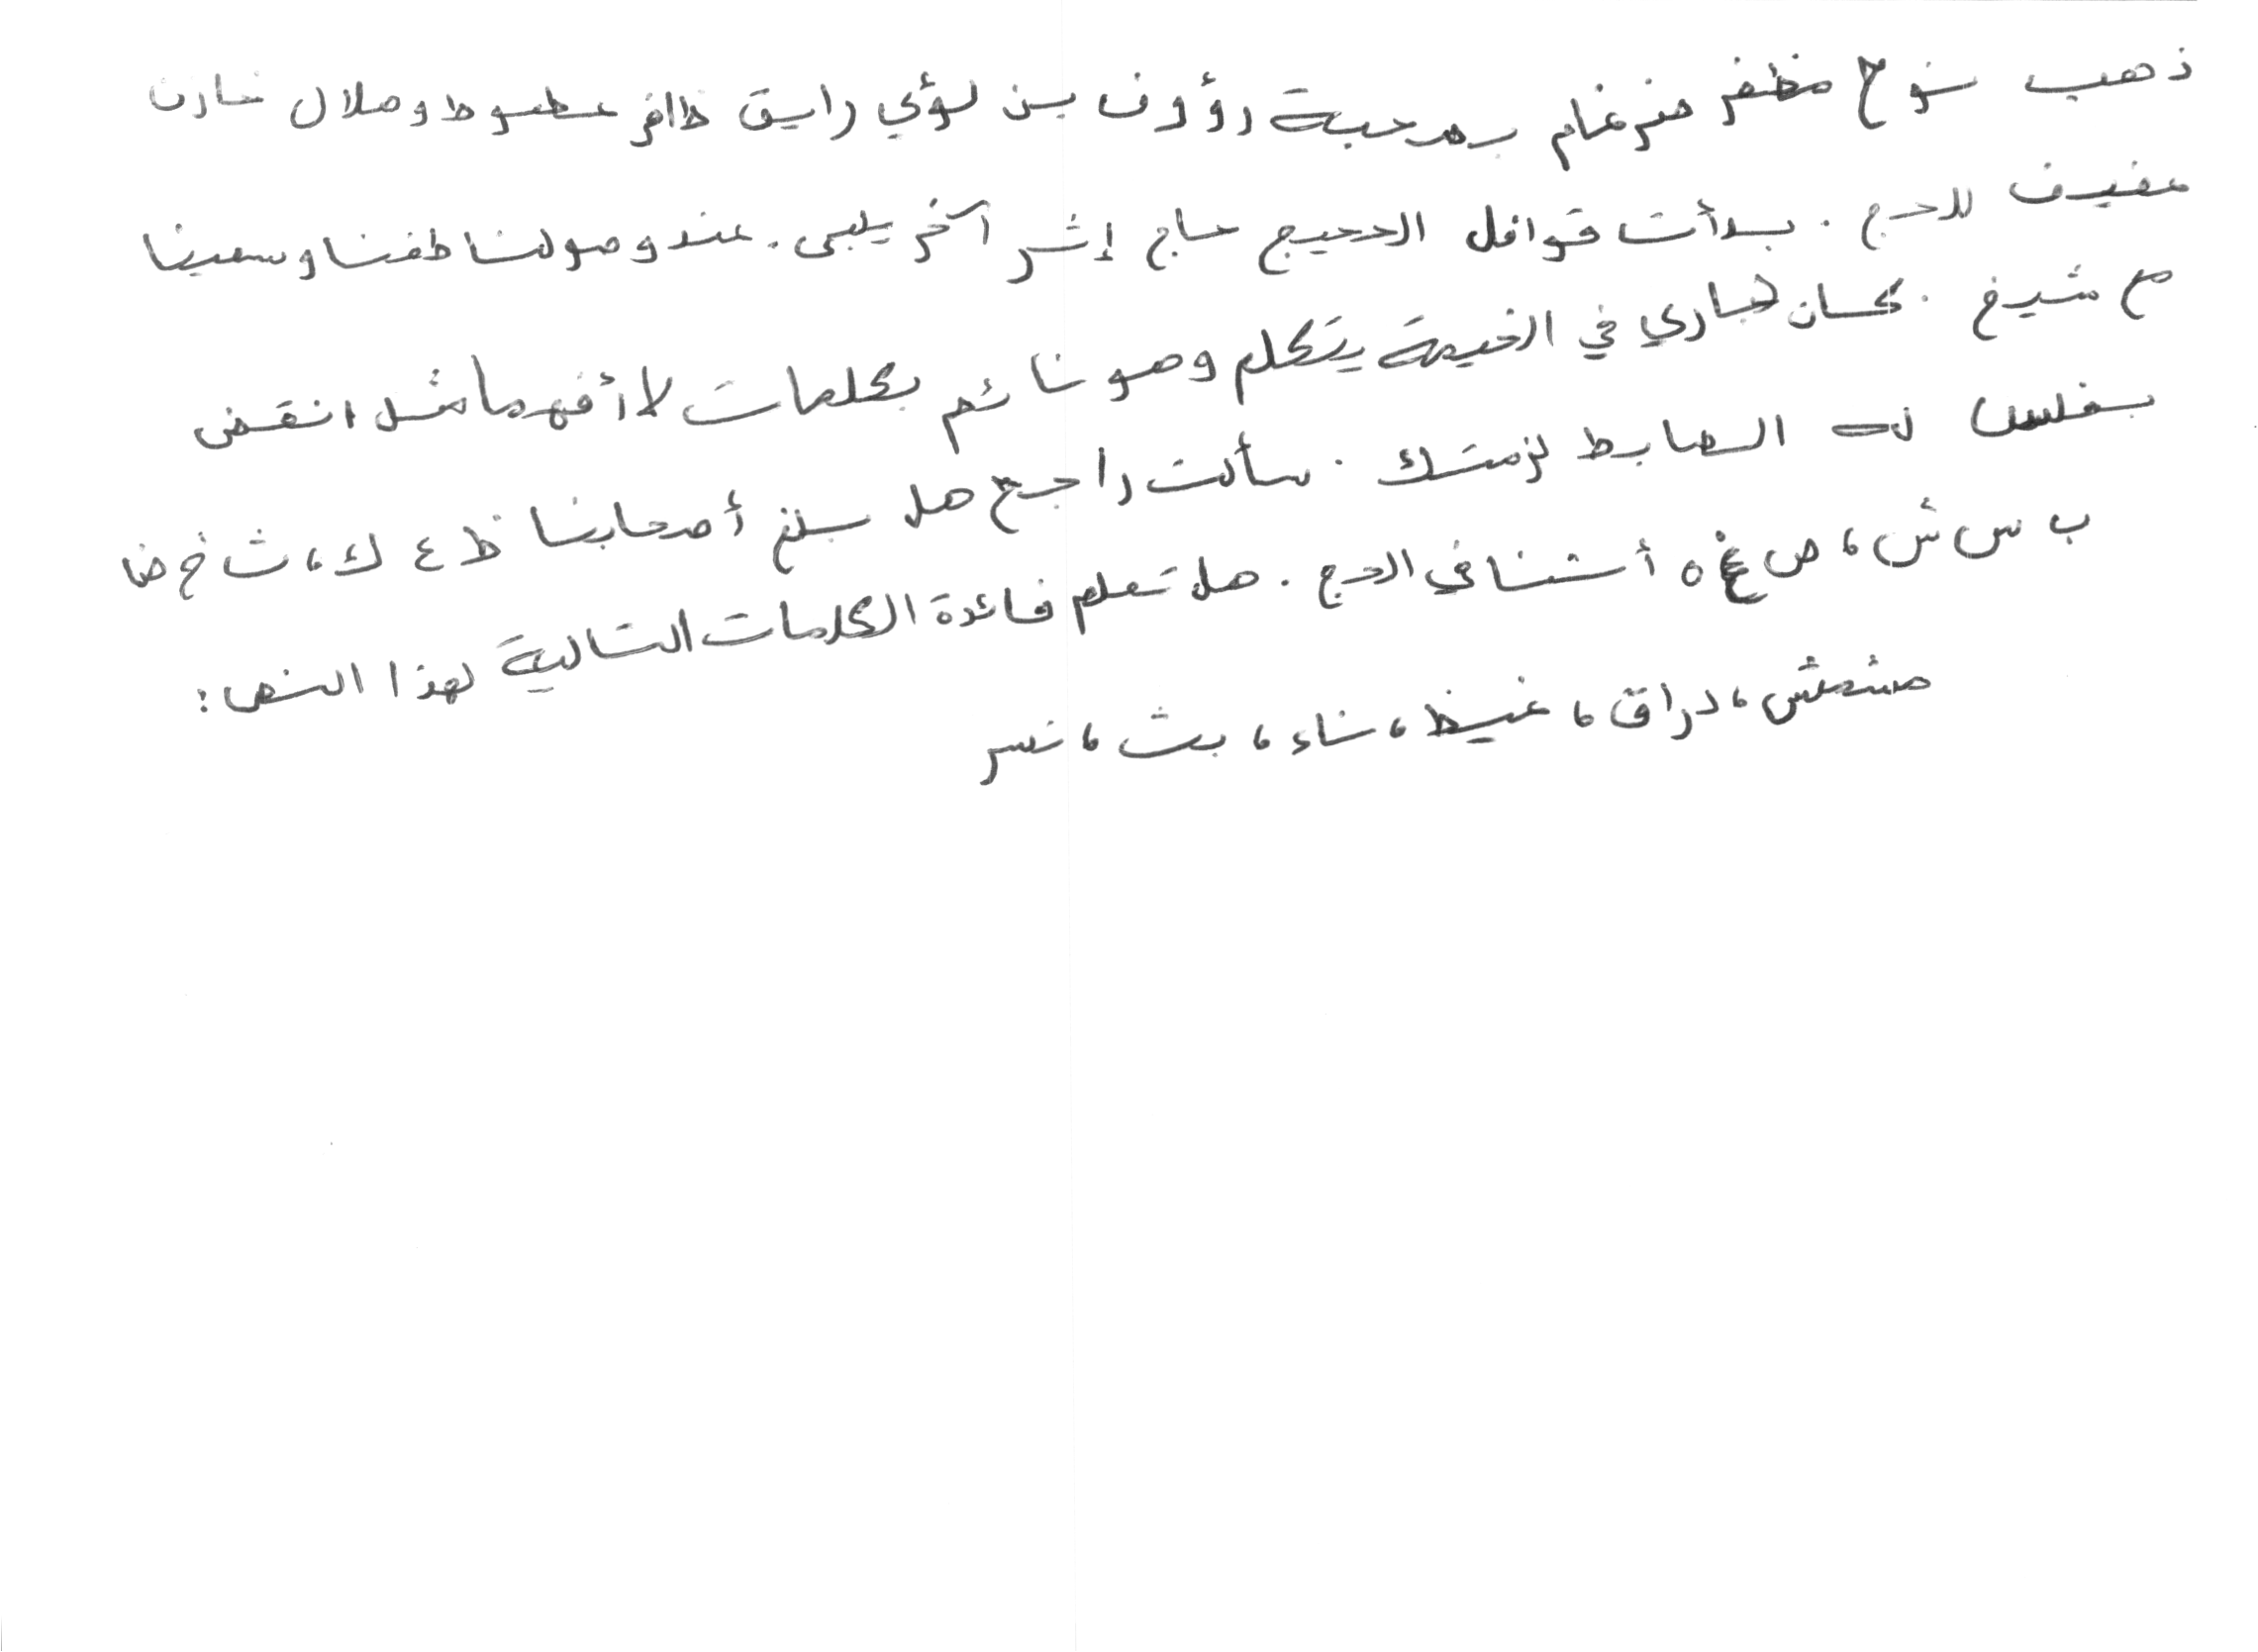 ذهب نوح مظفر ضرغام بصحبة رؤوف بن لؤي رايق ظافر عطعوط وهلال خازن
عفيف للحج . بدأت قوافل الحجيج حاج إثر آخر يلبي . عند وصولنا طفنا وسعينا
مع شيخ . كان جاري في الخيمة يتكلم وهو نائم بكلمات لا أفهمها مثل انقض
بغلس الضابط لزمتك . سألت راجح هل بلغ أصحابنا ظ ع ك ، ث خ ض
ب س ش ، ص غ ه أننا في الحج . هل تعلم فائدة الكلمات التالية لهذا النص :
مشمش ، دراق ، غيظ ، ناء ، بث ، نسر